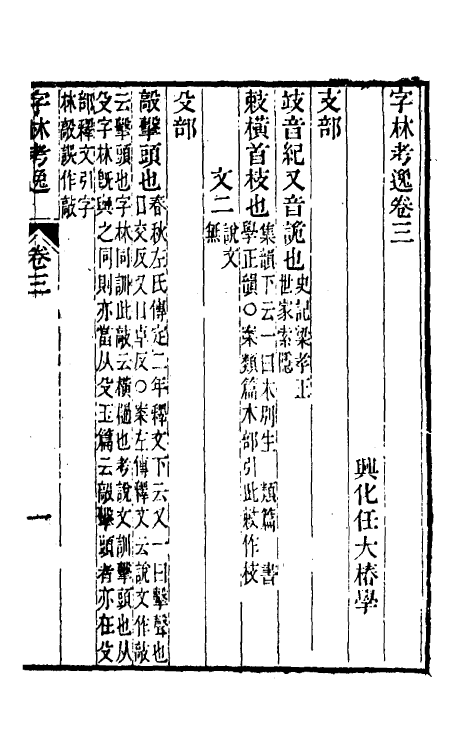 字林考逸卷三
興化任大椿學
支部
攱音紀又音詭也
史記梁孝王
世家索隱
橫首枝也
集韻下云一曰木別生 類篇 書
學正韻○案類篇木部引此作枝
文二
說文
無
殳部
毃擊頭也
春秋左氏傳定二年釋文下云又一曰擊聲也
口交反又口卓反○案左傳釋文云說文作敲
云擊頭也字林同訓此敲云橫檛也考說文訓擊頭也从
殳字林既與之同則亦當从殳玉篇云毃擊頭者亦在殳
部釋文引字
林毃誤作敲
字林考逸 卷三 一